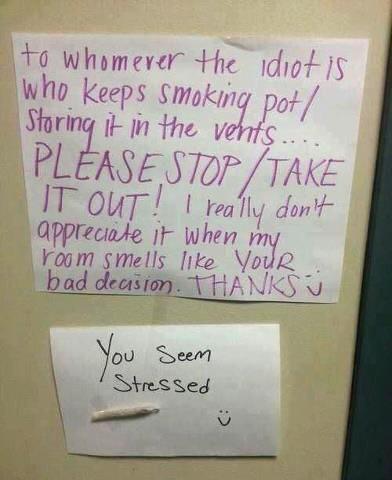 to whomever the idiot is
who keeps smoking pot/
storing it in the vents....
PLEASE STOP/TAKE
IT OUT! I really don't
appreciate it when my
room smells like YOUR
bad decision. THANKS :)
You Seem
Stressed
:)